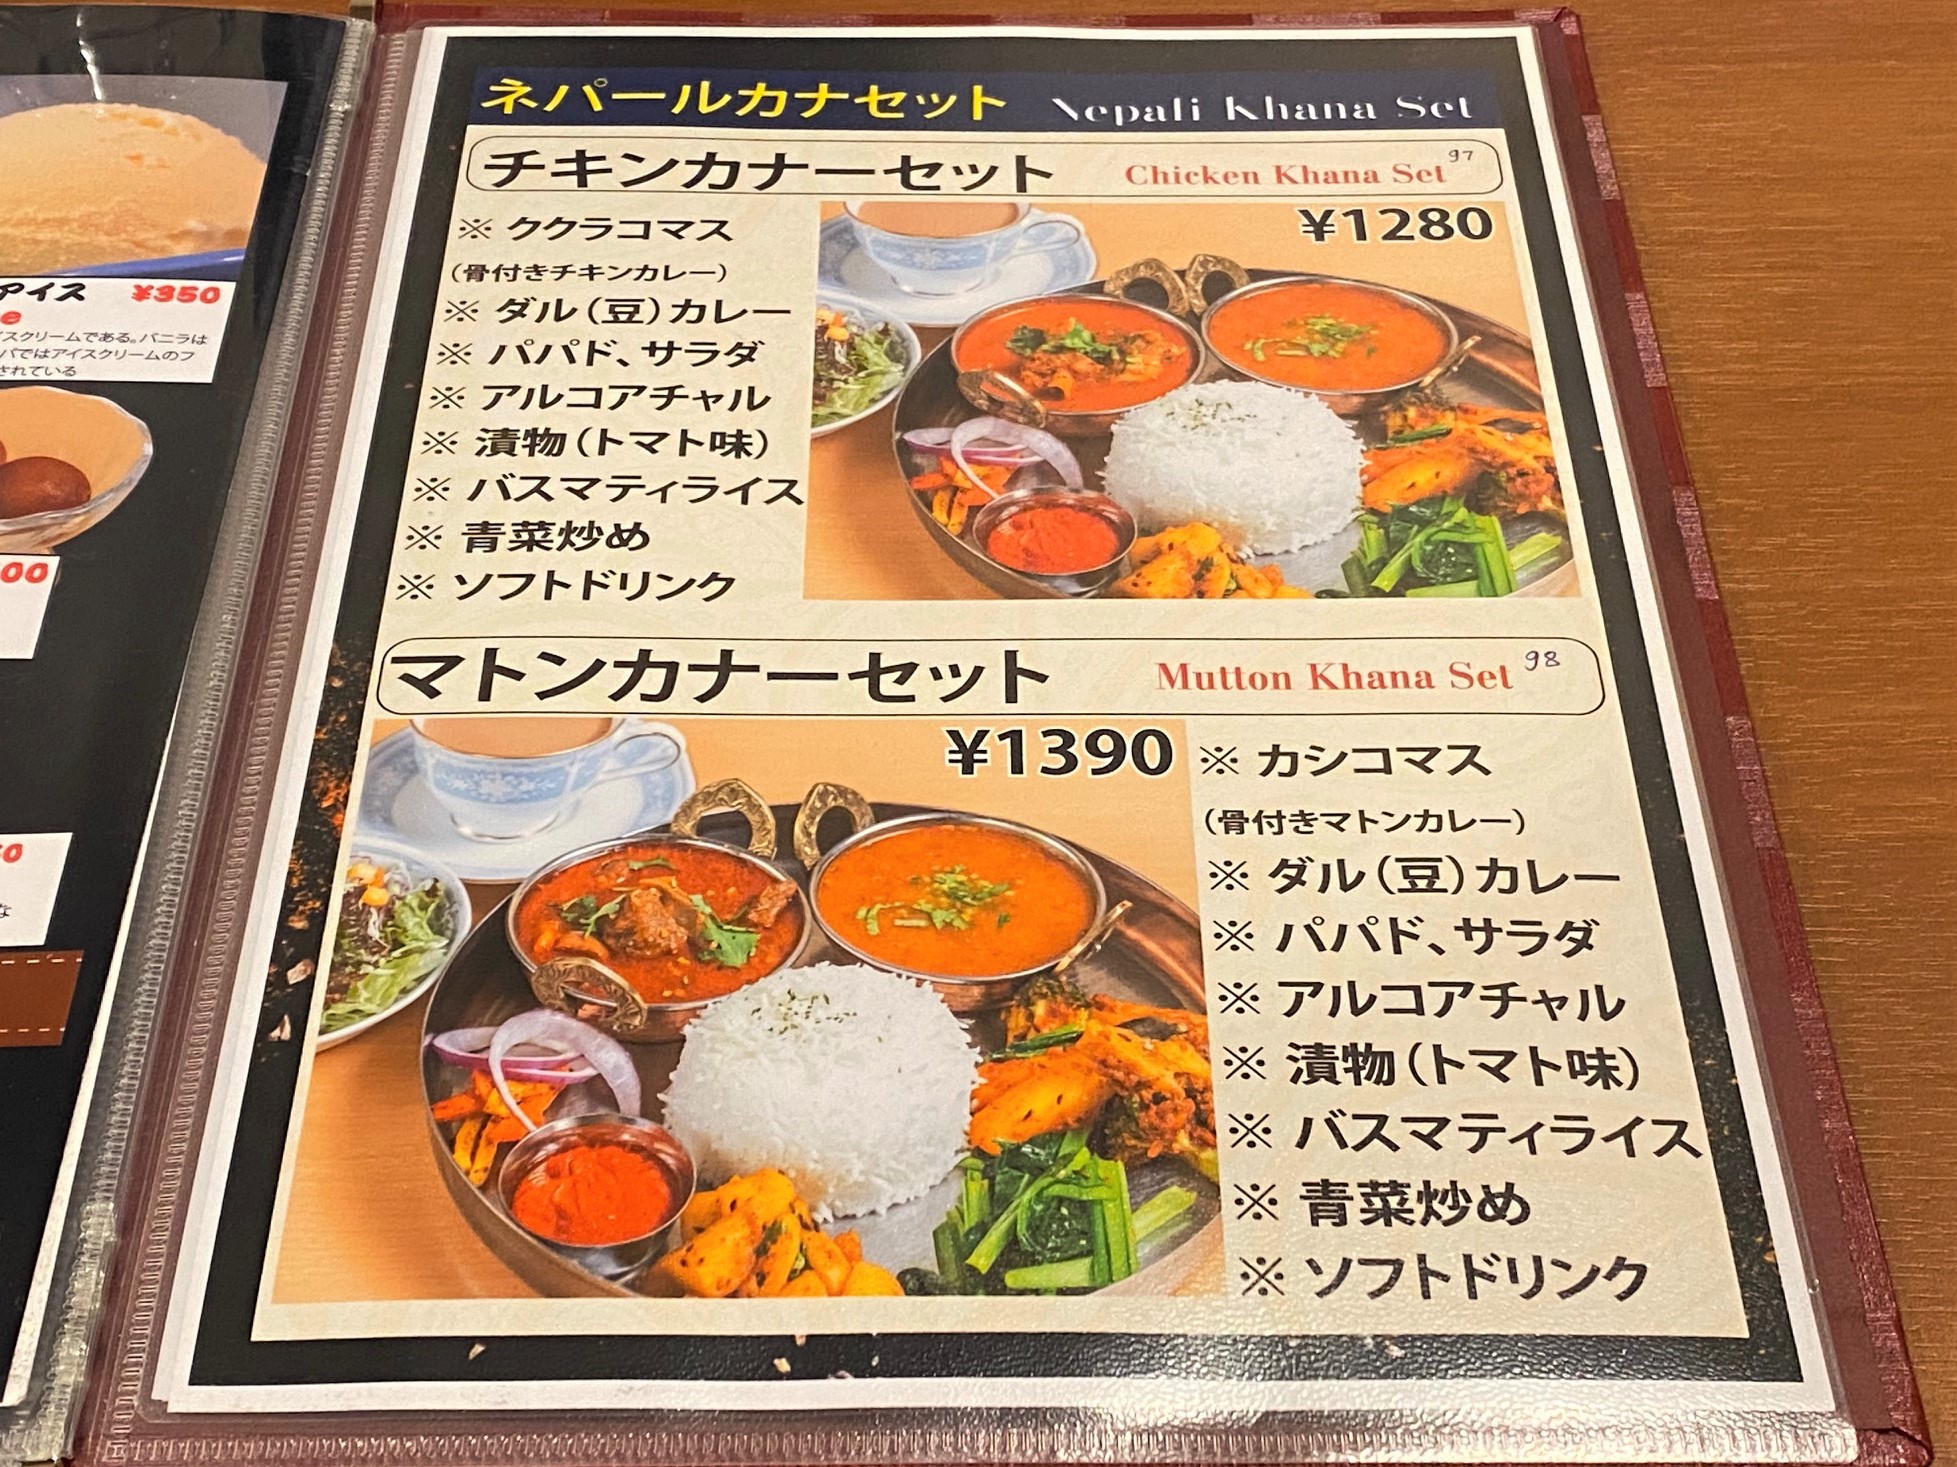 アイス ¥350
イスクリームである。バニラは
パではアイスクリームのフ
されている
00
ネパールカナセット Nepali Khana Set
チキンカナーセット Chicken Khana Set 97
¥1280
※ ククラコマス
(骨付きチキンカレー)
※ ダル(豆)カレー
※ パパド、サラダ
※ アルコアチャル
※ 漬物(トマト味)
※ バスマティライス
※ 青菜炒め
※ ソフトドリンク
マトンカナーセット Mutton Khana Set 98
¥1390
※ カシコマス
(骨付きマトンカレー)
※ ダル(豆)カレー
※ パパド、サラダ
※ アルコアチャル
※ 漬物(トマト味)
※ バスマティライス
※ 青菜炒め
※ ソフトドリンク